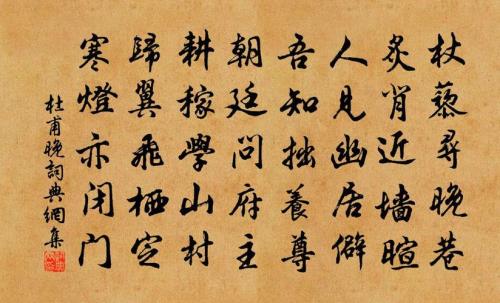 杖藜尋晚巷
炙背近墙暄
人見幽居僻
吾知拙養尊
朝廷問府主
耕稼學山村
歸翼飛栖定
寒燈亦闭门
杜甫晚詞典網集